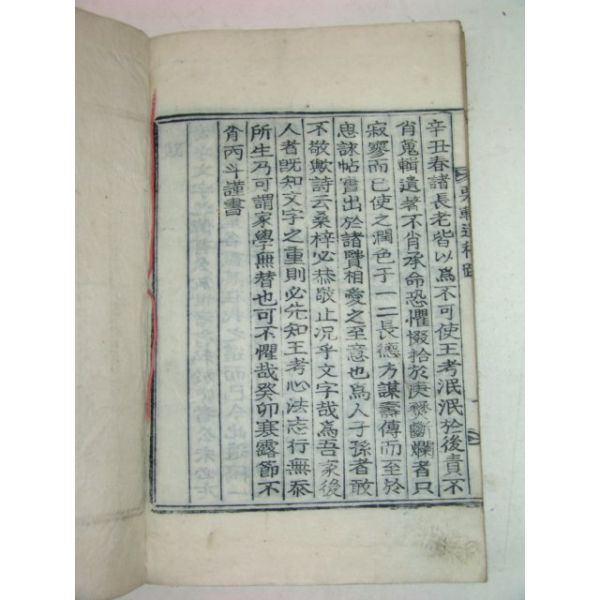 辛丑春諸長老皆以爲不可使王考泯泯於後責不
肖蒐輯遺著不肖承命恐懼掇拾於庚癸斷爛者只
寂寥而已使之潤色于一二長德方謀壽傳而至於
悤誄帖實出於諸賢相愛之至意也爲人子孫者敢
不敬歟詩云桑梓必恭敬止况乎文字哉爲吾家後
人者旣知文字之重則必先知王考心法志行無忝
所生乃可謂家學無替也可不懼哉癸卯寒露節不
肖丙斗謹書